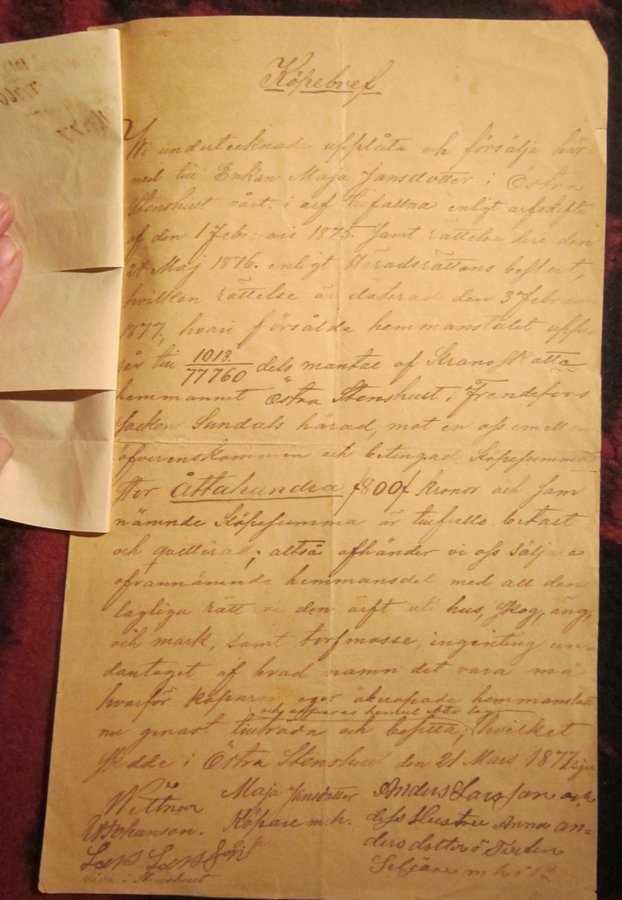 Köpebref
Wi undertecknade upplåta och försälja här
med till Enkan Maja Jansdotter i Östra
Stenshult vårt i arf tillfallna enligt arfskifte
af den 1 Februari 1875. samt rättelse deri den
Maj 1876. enligt Häradsrättens beslut,
hvilken rättelse är daterad den 3 Februari
1877, hvari försålda hemmanstalet upp-
går till 1013/77760 dels mantal af Kronoskatte
hemmanet Östra Stenshult i Frendefors
Socken Sundals härad, mot en oss emellan
öfverenskommen och betingad Köpesumma
stor Åttahundra 800 kronor och som
nämnde Köpesumma är tillfullo betalt
och qvitterad; altså afhänder vi oss
ofvannämnde hemmansdel med all den
lagliga rätt vi den ärft uti hus, skog, äng,
och mark, samt torfmosse, ingenting un-
dantaget af hvad namn det vara må
hvarför köparen eger hemmans
nu genast tillträda och besitta, hvilket
skedde i Östra Stenshult den 21 Mars 1877
Wittnar Maja Jansdotter Anders Larsson och
Johanson. Köpare m.h. dess Hustru Anna An-
Lars Larsson dersdotter i
i Stenshult Säljare m h